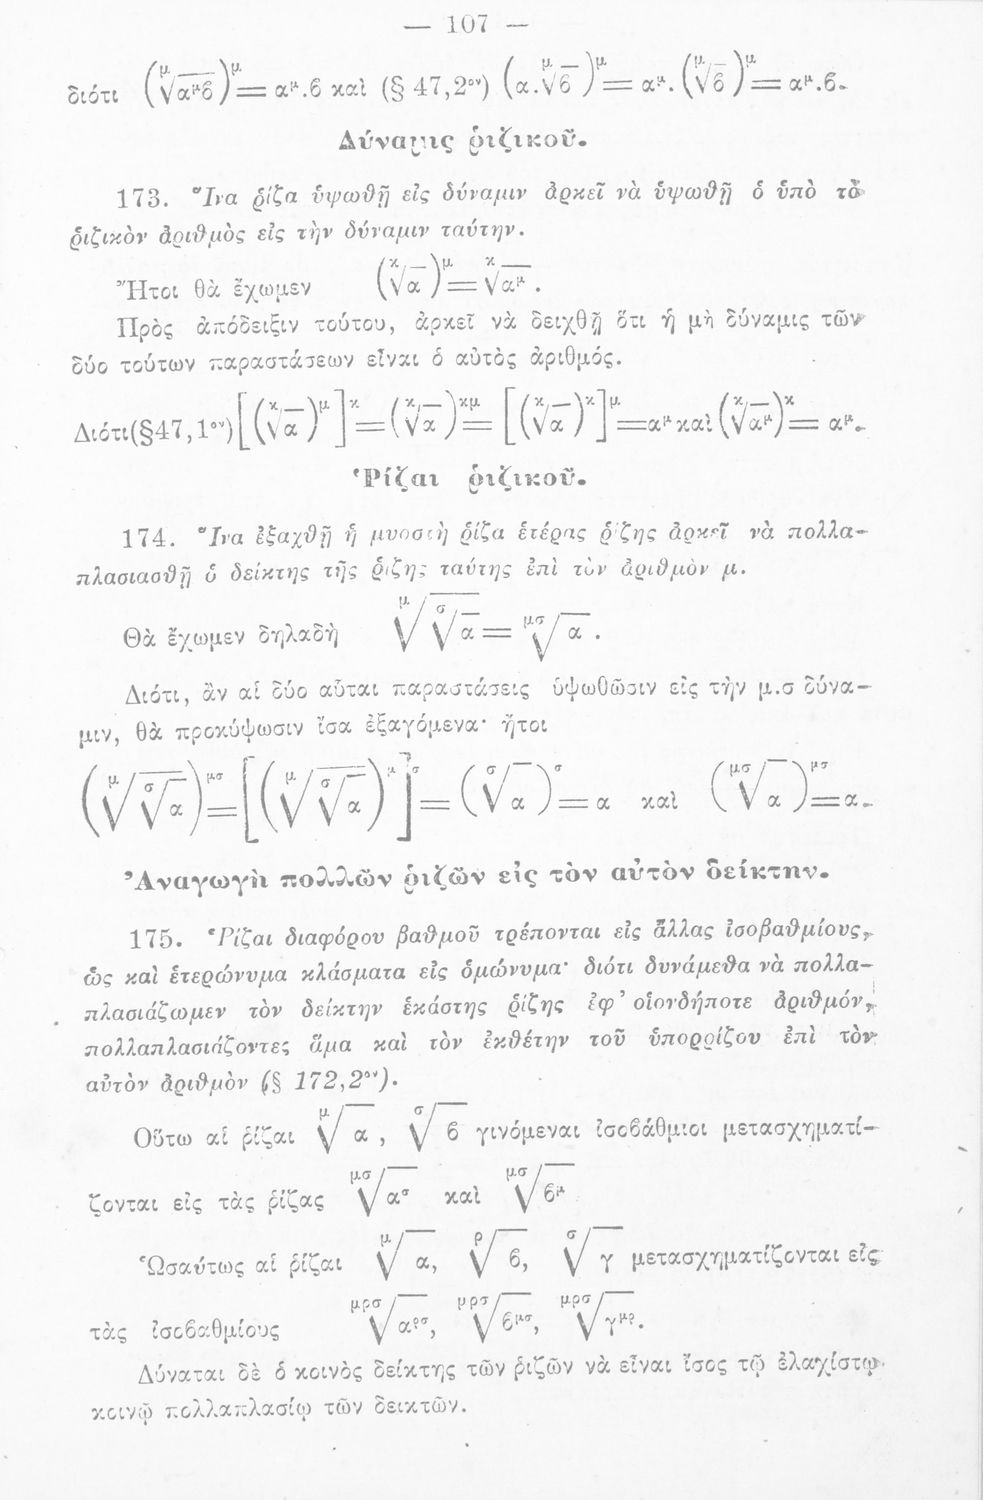 — 107 —
διότι (\sqrt[μ]{α^μ ϐ})^μ = α^μ.ϐ καὶ (§ 47,2ον) (α.\sqrt[μ]{ϐ})^μ = α^μ.(\sqrt[μ]{ϐ})^μ = α^μ.ϐ.
Δύναμις ῥιζικοῦ.
173. Ἵνα ῥίζα ὑψωθῇ εἰς δύναμιν ἀρκεῖ νὰ ὑψωθῇ ὁ ὑπὸ τὸ
ῥιζικὸν ἀριθμὸς εἰς τὴν δύναμιν ταύτην.
Ἤτοι θὰ ἔχωμεν (\sqrt[κ]{α})^μ = \sqrt[κ]{α^μ}.
Πρὸς ἀπόδειξιν τούτου, ἀρκεῖ νὰ δειχθῇ ὅτι ἡ μὴ δύναμις τῶν
δύο τούτων παραστάσεων εἶναι ὁ αὐτὸς ἀριθμός.
Διότι(§47,1ον) [(\sqrt[κ]{α})^μ]^κ = (\sqrt[κ]{α})^{κμ} = [(\sqrt[κ]{α})^κ]^μ = α^μ καὶ (\sqrt[κ]{α^μ})^κ = α^μ.
Ῥίζαι ῥιζικοῦ.
174. Ἵνα ἐξαχθῇ ἡ μυοστὴ ῥίζα ἑτέρας ῥίζης ἀρκεῖ νὰ πολλα-
πλασιασθῇ ὁ δείκτης τῆς ῥίζης ταύτης ἐπὶ τὸν ἀριθμὸν μ.
Θὰ ἔχωμεν δηλαδὴ \sqrt[μ]{\sqrt[σ]{α}} = \sqrt[μσ]{α}.
Διότι, ἂν αἱ δύο αὗται παραστάσεις ὑψωθῶσιν εἰς τὴν μ.σ δύνα-
μιν, θὰ προκύψωσιν ἴσα ἐξαγόμενα· ἤτοι
(\sqrt[μ]{\sqrt[σ]{α}})^{μσ} = [(\sqrt[μ]{\sqrt[σ]{α}})^μ]^σ = (\sqrt[σ]{α})^σ = α καὶ (\sqrt[μσ]{α})^{μσ} = α.
Ἀναγωγὴ πολλῶν ῥιζῶν εἰς τὸν αὐτὸν δείκτην.
175. Ῥίζαι διαφόρου βαθμοῦ τρέπονται εἰς ἄλλας ἰσοβαθμίους,
ὡς καὶ ἑτερώνυμα κλάσματα εἰς ὁμώνυμα· διότι δυνάμεθα νὰ πολλα-
πλασιάζωμεν τὸν δείκτην ἑκάστης ῥίζης ἐφ' οἱονδήποτε ἀριθμόν,
πολλαπλασιάζοντες ἅμα καὶ τὸν ἐκθέτην τοῦ ὑπορρίζου ἐπὶ τὸν
αὐτὸν ἀριθμὸν (§ 172,2ον).
Οὕτω αἱ ῥίζαι \sqrt[μ]{α}, \sqrt[σ]{ϐ} γινόμεναι ἰσοϐάθμιοι μετασχηματί-
ζονται εἰς τὰς ῥίζας \sqrt[μσ]{α^σ} καὶ \sqrt[μσ]{ϐ^μ}
Ὡσαύτως αἱ ῥίζαι \sqrt[μ]{α}, \sqrt[ρ]{ϐ}, \sqrt[σ]{γ} μετασχηματίζονται εἰς
τὰς ἰσοϐαθμίους \sqrt[μρσ]{α^{ρσ}}, \sqrt[μρσ]{ϐ^{μσ}}, \sqrt[μρσ]{γ^{μρ}}.
Δύναται δὲ ὁ κοινὸς δείκτης τῶν ῥιζῶν νὰ εἶναι ἴσος τῷ ἐλαχίστῳ
κοινῷ πολλαπλασίῳ τῶν δεικτῶν.